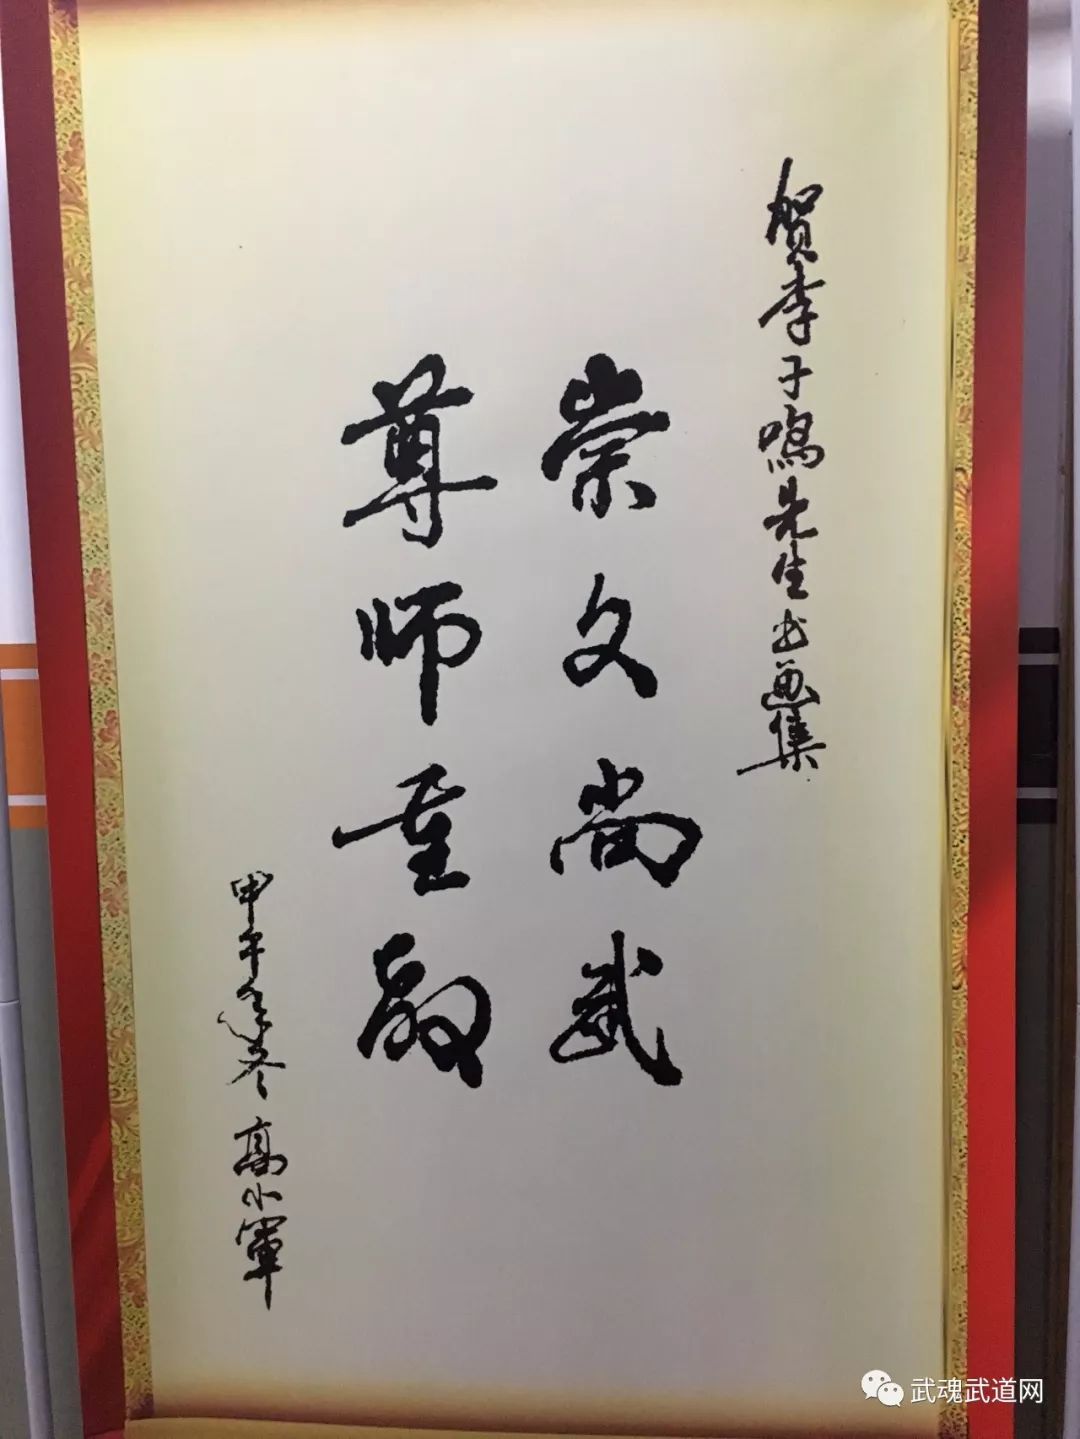 贺李子鸣先生书画集
崇文尚武
尊师重教
甲午年冬 高小军
武魂武道网